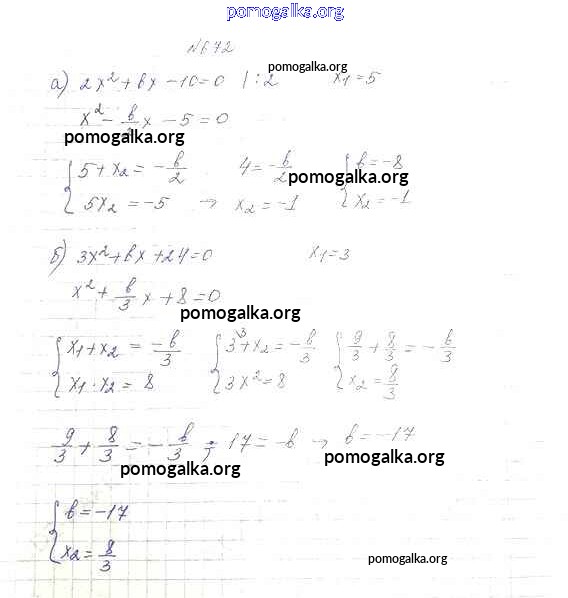 pomogalka.org
№672
pomogalka.org
а) 2x² + bx - 10 = 0 | : 2 x₁ = 5
x² - b/2 x - 5 = 0
pomogalka.org
{ 5 + x₂ = - b/2 4 = - b/2 { b = -8
pomogalka.org
5x₂ = -5 → x₂ = -1 x₂ = -1
б) 3x² + bx + 24 = 0 x₁ = 3
x² + b/3 x + 8 = 0
pomogalka.org
{ x₁ + x₂ = -b/3 { 3 + x₂ = - b/3 { 9/3 + 8/3 = - b/3
x₁ · x₂ = 8 3x² = 8 x₂ = 8/3
9/3 + 8/3 = - b/3 ; 17 = -b → b = -17
pomogalka.org
pomogalka.org
{ b = -17
x₂ = 8/3
pomogalka.org